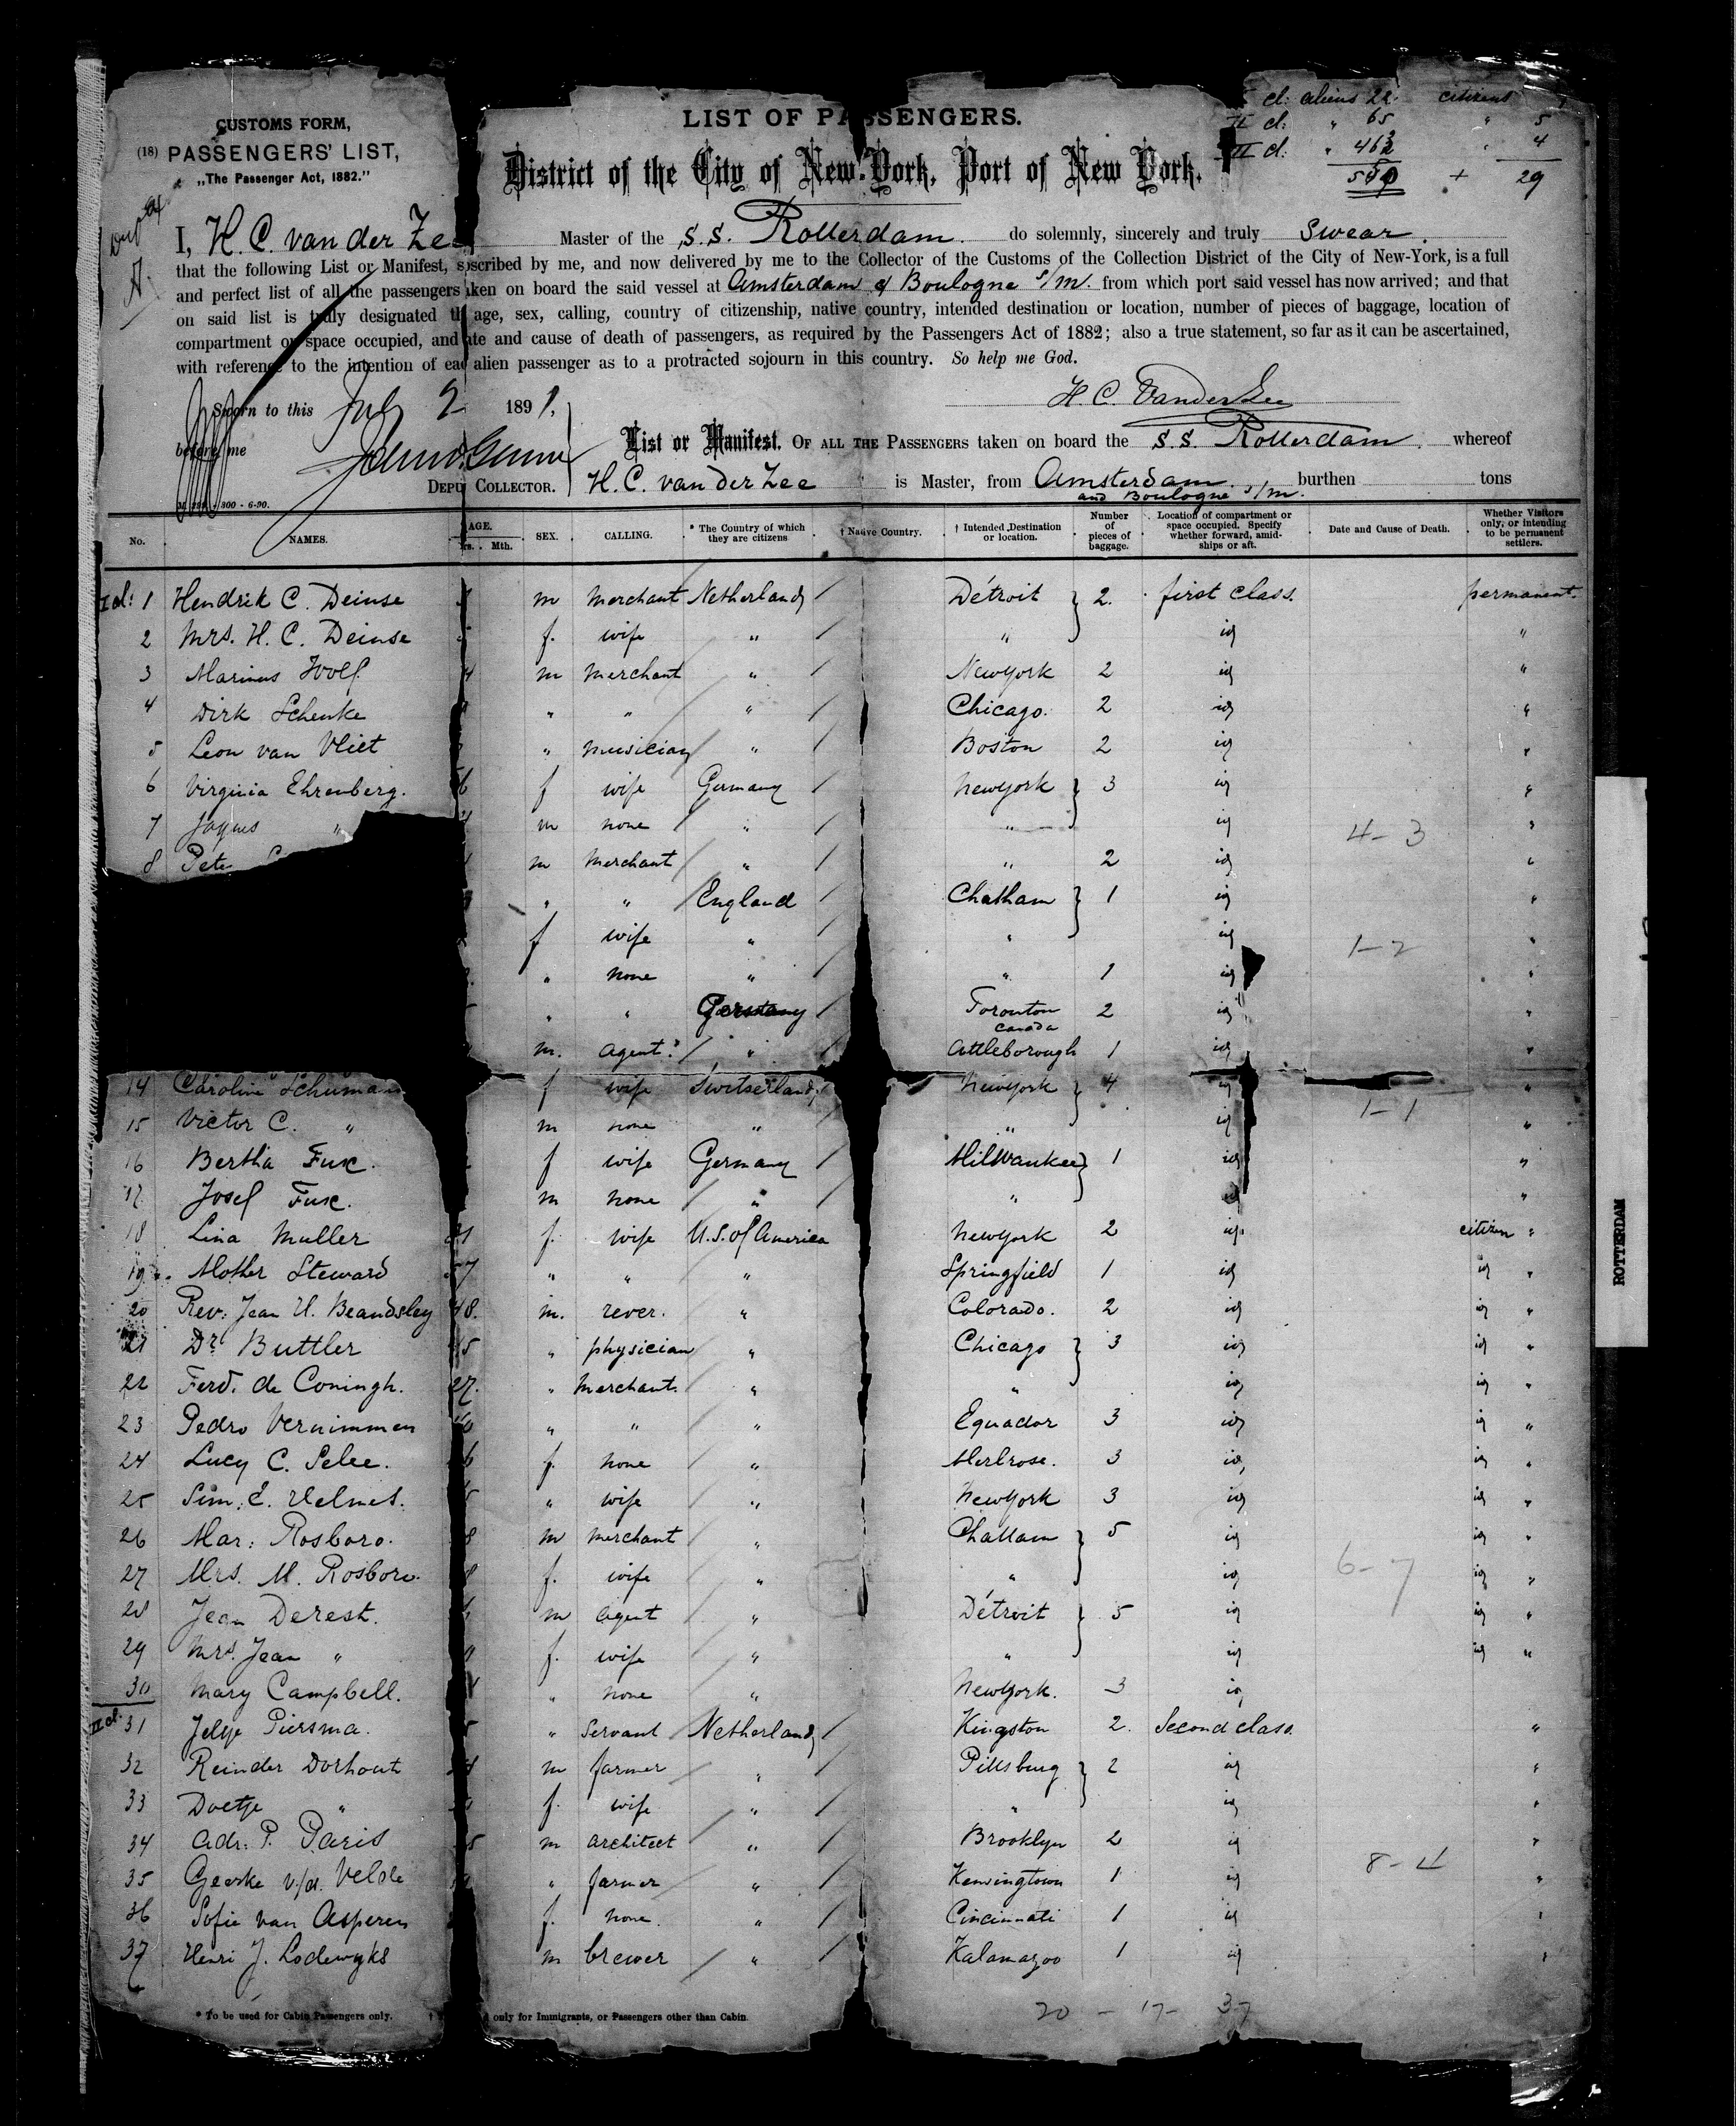 LIST OF PASSENGERS.
cl: aliens 22. citizens
II cl: " 65 " 5
III cl: " 462 " 4
+ 29
CUSTOMS FORM,
(18) PASSENGERS' LIST,
„The Passenger Act, 1882."
District of the City of New-York, Port of New York.
I, H. C. van der Zee Master of the S.S. Rotterdam. do solemnly, sincerely and truly swear.
that the following List or Manifest, scribed by me, and now delivered by me to the Collector of the Customs of the Collection District of the City of New-York, is a full
and perfect list of all the passengers ken on board the said vessel at Amsterdam & Boulogne s/m. from which port said vessel has now arrived; and that
on said list is truly designated th age, sex, calling, country of citizenship, native country, intended destination or location, number of pieces of baggage, location of
compartment or space occupied, and te and cause of death of passengers, as required by the Passengers Act of 1882; also a true statement, so far as it can be ascertained,
with reference to the intention of eac alien passenger as to a protracted sojourn in this country. So help me God.
H. C. VanderZee
Sworn to this July 2 1891,
before me
Depu Collector.
List or Manifest. Of all the Passengers taken on board the S.S. Rotterdam. whereof
H. C. van der Zee is Master, from Amsterdam and Boulogne s/m. burthen tons
300 - 6-90.
No. NAMES. AGE. Yrs. Mth. SEX. CALLING. * The Country of which they are citizens † Native Country. † Intended Destination or location. Number of pieces of baggage. Location of compartment or space occupied. Specify whether forward, amidships or aft. Date and Cause of Death. Whether Visitors only, or intending to be permanent settlers.
I cl: 1 Hendrik C. Deinse m merchant Netherlands / Détroit 2. first class. permanent.
2 Mrs. H. C. Deinse f. wife " / " id "
3 Marinus Wolf 4 m merchant " / Newyork 2 id "
4 Dirk Schenke " " " / Chicago. 2 id "
5 Leon van Vliet " musician " / Boston 2 id "
6 Virginia Ehrenberg. 6 f wife Germany / Newyork 3 id "
7 Jaques " m none " / " id "
4-3
8 Pete m merchant " / " 2 id "
" " England / Chatham 1 id "
f wife " / " id "
1-2
" none " / " 1 id "
" " Germany / Toronton Canada 2 id "
m. agent. " / Attleborough 1 id "
14 Caroline Schuman f wife Switserland, / Newyork 4 id "
1-1
15 Victor C. " m none " / " id "
16 Bertha Fux. f wife Germany / Milwaukee 1 id "
17 Josef Fux. m none " / " id "
18 Lina Muller 21 f. wife U.S. of America Newyork 2 id citizen "
19 Mother Steward 57 " " " Springfield 1 id id "
20 Rev: Jean H. Beandsley 48. m. rever. " Colorado. 2 id id "
21 Dr. Buttler 45 " physician " Chicago 3 id id "
22 Ferd. de Coningh. 27. " merchant. " " id id "
23 Pedro Vernimmen " " " Equador 3 id id "
24 Lucy C. Pelee. 6 f. none " Merlrose. 3 id, id "
25 Sim. E. Helmes. 5 " wife " Newyork 3 id id "
26 Mar: Rosboro. 8 m merchant " Chattam 5 id id "
27 Mrs. M. Rosboro. 8 f. wife " " id id "
6-7
28 Jean Derest. m agent " Détroit 5 id id "
29 Mrs. Jean " f. wife " " id id "
30 Mary Campbell. " none " Newyork. 3 id
II cl. 31 Jelye Piersma. " Servant Netherlands / Kingston 2. Second class. "
32 Reinder Dorhout m farmer " / Pittsburg 2 id "
33 Doetje " f. wife " / " id "
34 Adr. P. Paris 5 m architect " / Brooklyn 2 id "
8-4
35 Geerke v/d. Velde " farmer " / Kensingtown 1 id "
36 Sofie van Asperen f. none. " / Cincinnati 1 id "
37 Henri J. Lodewyks m brewer " / Kalamazoo 1 id "
20 - 17- 37
* To be used for Cabin Passengers only. † only for Immigrants, or Passengers other than Cabin.
ROTTERDAM